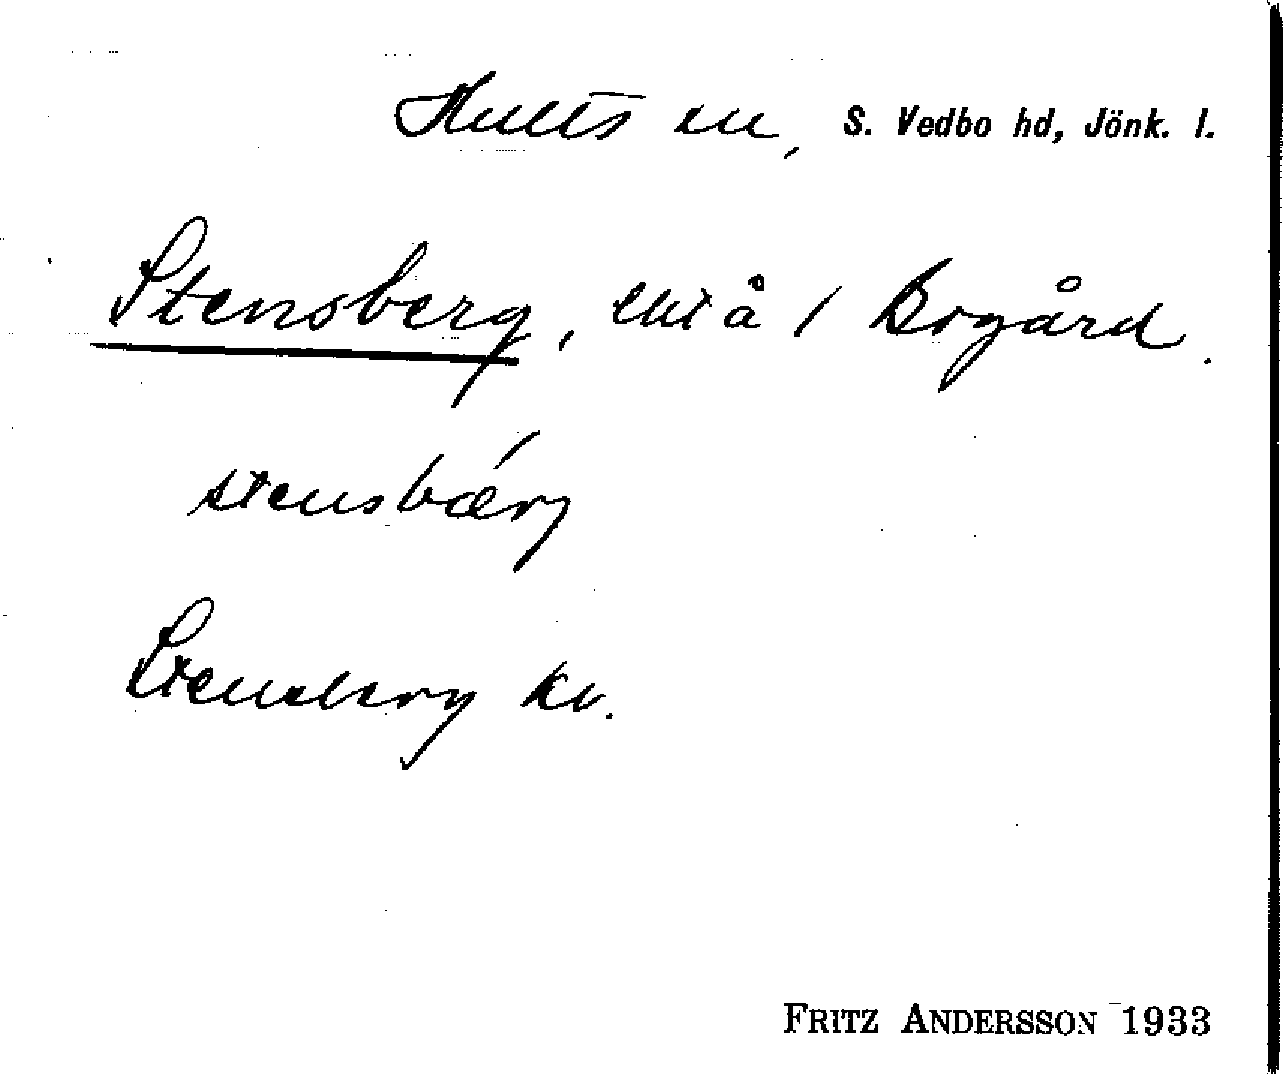 Hults sn, S. Vedbo hd, Jönk. l.
Stensberg, lht å 1 Bogård.
stensbǽrg
Stensberg kv.
FRITZ ANDERSSON 1933